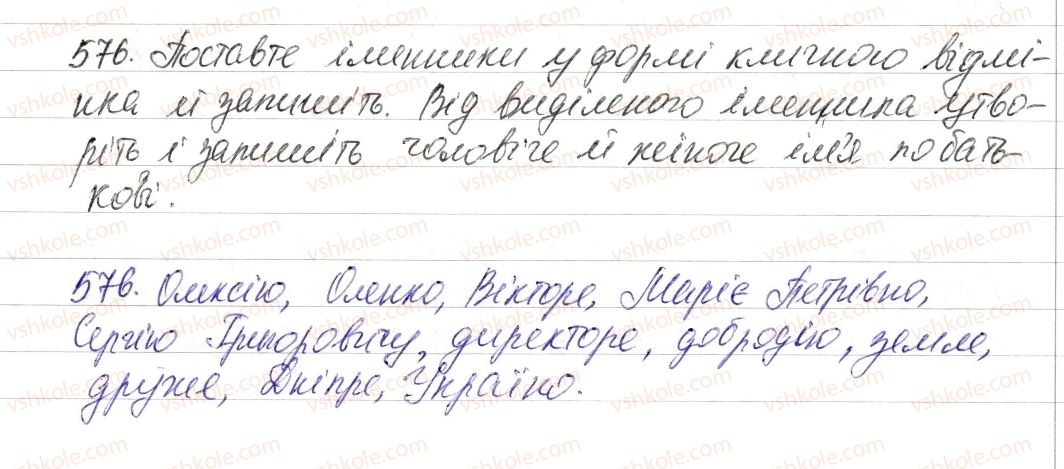 576. Поставте іменники у формі кличного відмі-
нка й запишіть. Від виділеного іменника утво-
ріть і запишіть чоловіче й жіноче ім'я по бать-
кові.
576. Олексію, Оленко, Вікторе, Маріє Петрівно,
Сергію Григоровичу, директоре, добродію, земле,
друже, Дніпре, Україно.